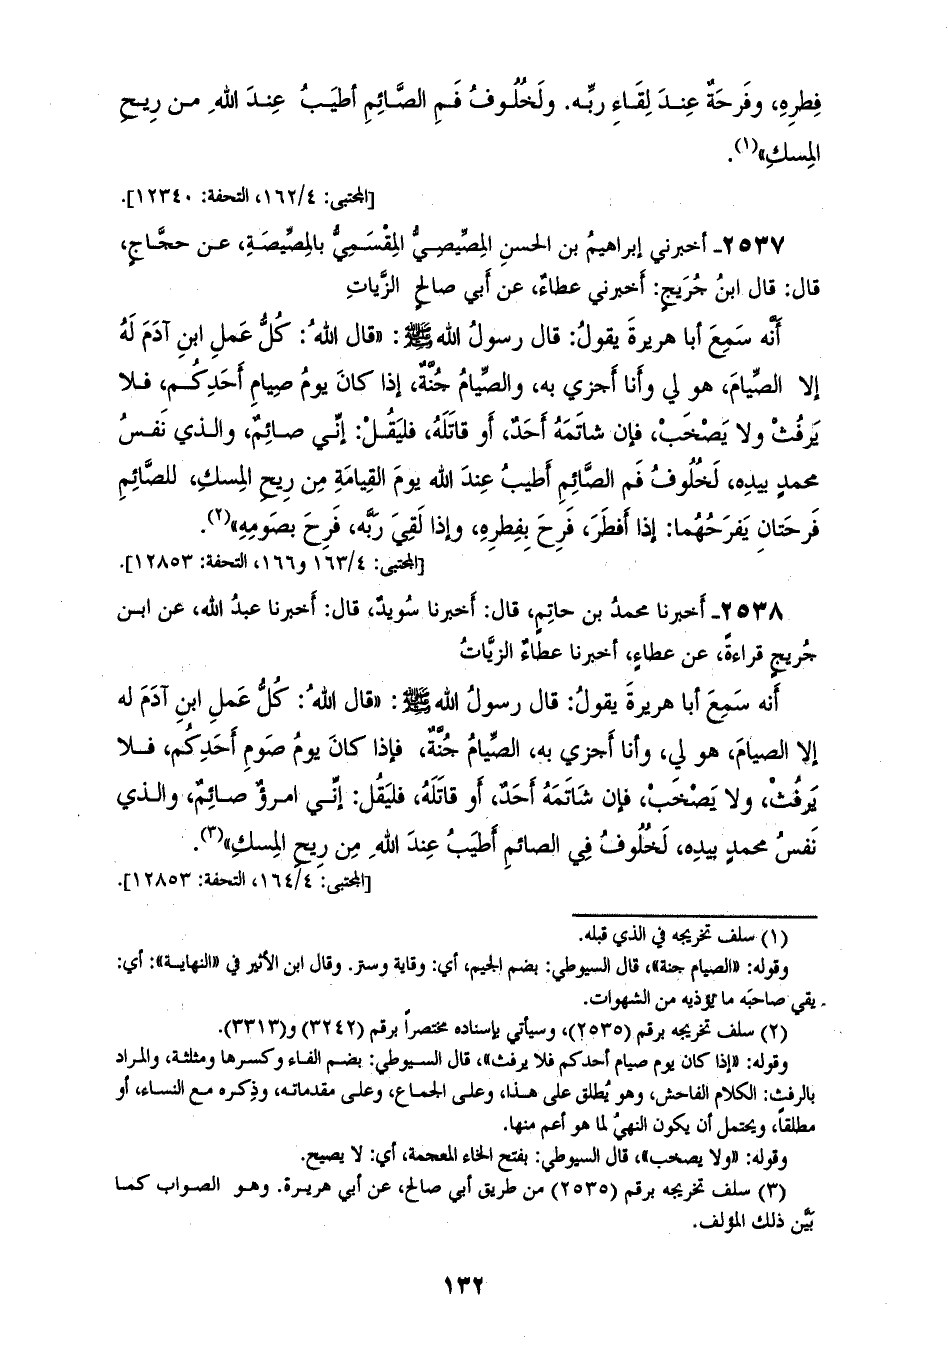 فِطرِهِ، وفَرحَةٌ عِندَ لِقَاءِ ربِّه. ولَخُلُوفُ فَمِ الصَّائِمِ أطيَبُ عِندَ اللهِ من رِيحِ
المِسكِ»(١).
[المجتبى: ١٦٢/٤، التحفة: ١٢٣٤٠].
٢٥٣٧ـ أخبرني إبراهيمُ بن الحسنِ المِصِّيصِيُّ المِقْسَمِيُّ بالمِصِّيصَةِ، عن حجَّاجٍ،
قال: قال ابنُ جُرَيجٍ: أخبرني عطاءٌ، عن أبي صالحٍ الزَّيات
أَنَّه سَمِعَ أبا هريرةَ يقولُ: قال رسولُ الله ﷺ: «قال اللهُ: كُلُّ عَملِ ابنِ آدَمَ لَهُ
إلا الصِّيامَ، هو لي وأنا أجزي به، والصِّيامُ جُنَّةٌ، إذا كانَ يومُ صِيامِ أَحَدِكُم، فلا
يَرفُثْ ولا يَصْخَبْ، فإن شاتَمَهُ أَحَدٌ، أو قاتَلَهُ، فليَقُلْ: إنِّي صائِمٌ، والذي نَفسُ
محمدٍ بيدِه، لَخُلُوفُ فَمِ الصَّائِمِ أَطيبُ عِندَ الله يومَ القِيامَةِ مِن رِيحِ المِسكِ، للصَّائِمِ
فَرحَتانِ يَفرَحُهُما: إذا أَفطَرَ، فَرِحَ بِفِطرِهِ، وإذا لَقِيَ رَبَّه، فَرِحَ بصَومِهِ»(٢).
[المجتبى: ١٦٣/٤ و١٦٦، التحفة: ١٢٨٥٣].
٢٥٣٨ـ أخبرنا محمدُ بن حاتِمٍ، قال: أخبرنا سُويدٌ، قال: أخبرنا عبدُ الله، عن ابن
جُريجٍ قراءةً، عن عطاءٍ، أخبرنا عطاءٌ الزيَّاتُ
أَنه سَمِعَ أبا هريرةَ يقولُ: قال رسولُ الله ﷺ: «قال اللهُ: كُلُّ عَملِ ابنِ آدَمَ له
إلا الصيامَ، هو لي، وأنا أجزي به، الصِّيامُ جُنَّةٌ، فإذا كانَ يومُ صَومِ أَحَدِكُم، فلا
يَرفُثْ، ولا يَصْخَبْ، فإن شَاتَمَهُ أَحَدٌ، أو قَاتَلَهُ، فليَقُل: إنِّي امرؤٌ صائِمٌ، والذي
نَفسُ محمدٍ بيدِه، لَخُلُوفُ فِي الصائمِ أَطيَبُ عِندَ اللهِ مِن رِيحِ المِسكِ»(٣).
[المجتبى: ١٦٤/٤، التحفة: ١٢٨٥٣].
(١) سلف تخريجه في الذي قبله.
وقوله: «الصيام جنة»، قال السيوطي: بضم الجيم، أي: وقاية وستر. وقال ابن الأثير في «النهاية»: أي:
يقي صاحبَه ما يُؤذيه من الشهوات.
(٢) سلف تخريجه برقم (٢٥٣٥)، وسيأتي بإسناده مختصراً برقم (٣٢٤٢) و(٣٣١٣).
وقوله: «إذا كان يوم صيام أحدكم فلا يرفث»، قال السيوطي: بضم الفاء وكسرها ومثلثة، والمراد
بالرفث: الكلام الفاحش، وهو يُطلق على هذا، وعلى الجماع، وعلى مقدماته، وذِكره مع النساء، أو
مطلقاً، ويحتمل أن يكون النهيُ لما هو أعم منها.
وقوله: «ولا يصخب»، قال السيوطي: بفتح الخاء المعجمة، أي: لا يصيح.
(٣) سلف تخريجه برقم (٢٥٣٥) من طريق أبي صالح، عن أبي هريرة. وهو الصواب كما
بيَّن ذلك المؤلف.
١٣٢